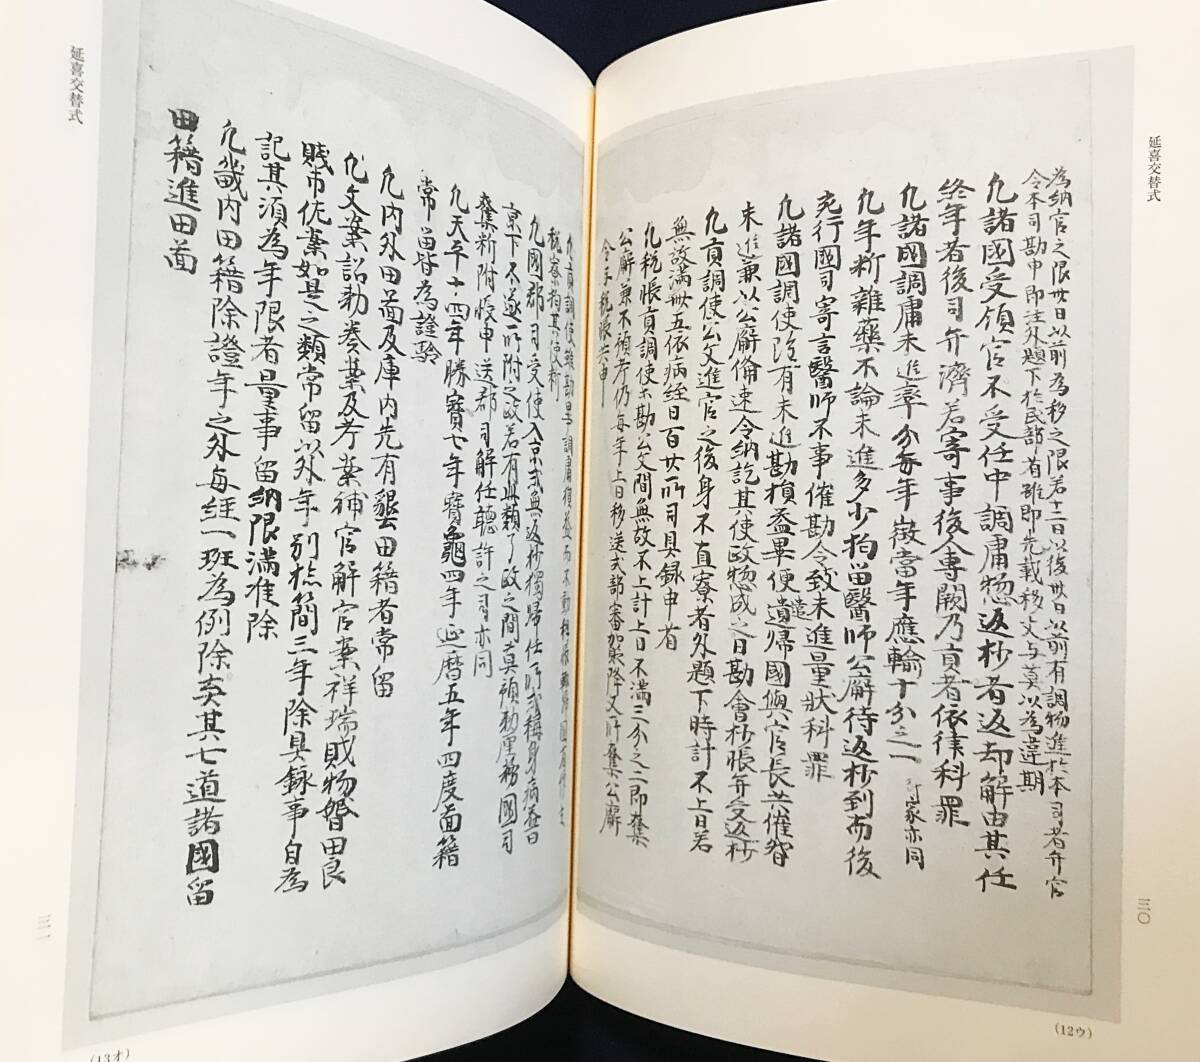 延喜交替式
為納官之限廿日以前為移之限若十一日以後廿日以前有調物進於本司者弁官
令本司勘申即注外題下於民部省雖即先載移文与莫以為違期
凡諸國受領官不受任中調庸惣返抄者返却解由其任
終年者後司弁濟若寄事後人專闕乃貢者依律科罪
凡諸國調庸未進率分每年徵當年應輸十分之一 家亦同
凡年料雜藥不論未進多少拘留醫師公廨待返抄到而後
充行國司寄言醫師不事催勘令致未進量狀科罪
凡諸國調使阿有未進勘損益畢便遣歸國與官長共催督
未進兼以公廨倫速令納訖其使政惣成之日勘會抄帳弁受返抄
凡貢調使公文進官之後身不直寮者外題下時計不上日若
無故滿卅五依病經日百廿所司具録申省
凡稅帳貢調使不勘公文間無故不上計上日不滿三分之二即奪
公廨兼不預考仍每年上日移送式部審加貶降又所奪公廨
令 稅帳 申
三〇
(12ウ)
延喜交替式
凡貢調使雖勘畢調庸損益而不勘租帳
税寮拘其使料
凡國郡司受使入京或無返抄獨歸任所或稱身病若曰
京下不遂所附之政若有此類了政之間莫預勘厘務國司
奪料附帳申送郡司解任聽許之司亦同
凡天平十四年勝寶七年寶龜四年延暦五年四度圖籍
常留皆為證驗
凡內外田圖及庫內先有墾田籍者常留
凡文案詔勅奏案及考案補官解官案祥瑞賊物婚田良
賤市估案如此之類常留以外年別檢簡三年除具錄事自為
記其須為年限者量事留納限滿准除
凡畿內田籍除證年之外每經一班為例除棄其七道諸國留
田籍進田圖
三一
(13オ)